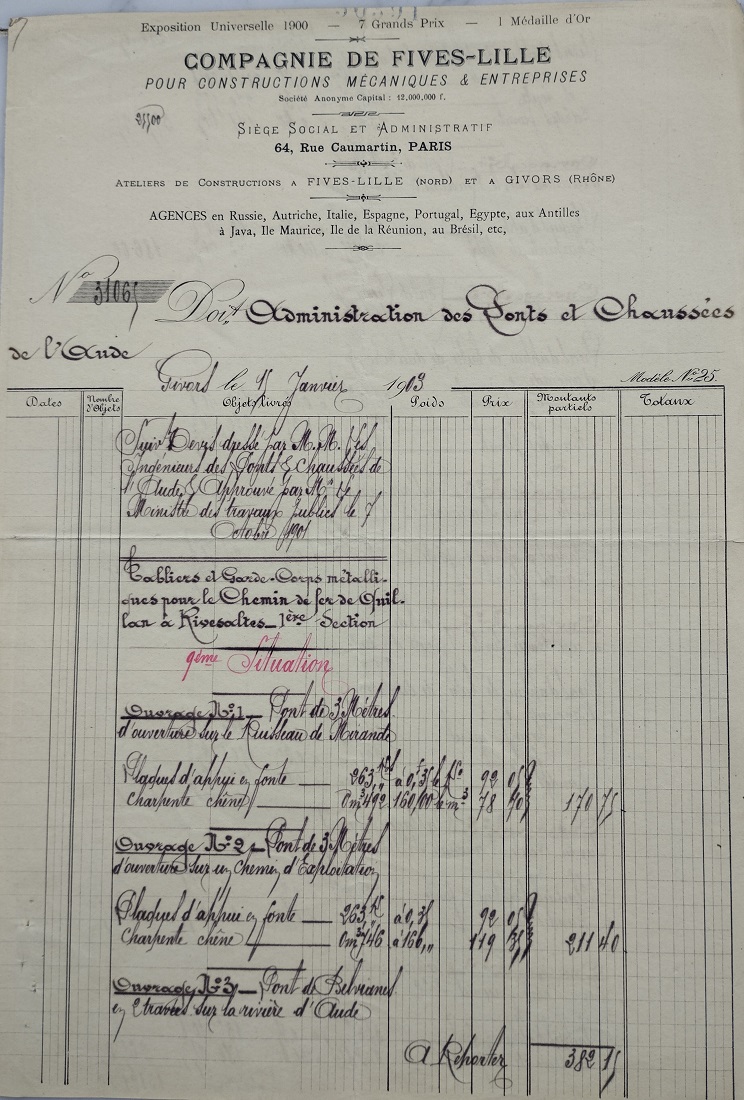 Exposition Universelle 1900 — 7 Grands Prix — 1 Médaille d'Or
COMPAGNIE DE FIVES-LILLE
POUR CONSTRUCTIONS MÉCANIQUES & ENTREPRISES
Société Anonyme Capital : 12,000,000 f.
SIÈGE SOCIAL ET ADMINISTRATIF
64, Rue Caumartin, PARIS
ATELIERS DE CONSTRUCTIONS A FIVES-LILLE (NORD) ET A GIVORS (RHÔNE)
AGENCES en Russie, Autriche, Italie, Espagne, Portugal, Egypte, aux Antilles
à Java, Ile Maurice, Ile de la Réunion, au Brésil, etc,
No 31065 Doit Administration des Ponts et Chaussées
de l'Aude
Givors le 15 Janvier 1903
Modèle No 25.
Dates Nombre d'Objets Objets livrés Poids Prix Montants partiels Totaux
Suivt Devis dressé par M.M. les
Ingénieurs des Ponts & Chaussées de
l'Aude & Approuvé par Mr le
Ministre des travaux publics le 7
Octobre 1901
Tabliers et Garde-Corps métalli-
ques pour le Chemin de fer de Quil-
lan à Rivesaltes_1ère Section
9ème Situation
Ouvrage No 1_ Pont de 3 Mètres
d'ouverture sur le Ruisseau de Mirande
Plaques d'appui en fonte — 263 Ks à 0,35 le Ko 92 05
charpente chêne — 0m3492 160,00 le m3 78 70 170 75
Ouvrage No 2_ Pont de 3 Mètres
d'ouverture sur un Chemin d'Exploitation
Plaques d'appui en fonte — 263 K à 0,35 92 05
charpente chêne — 0m3746 à 160,, 119 35 211 40
Ouvrage No 3_ Pont de Belvianes
en 2 travées sur la rivière d'Aude
A Reporter 382 15